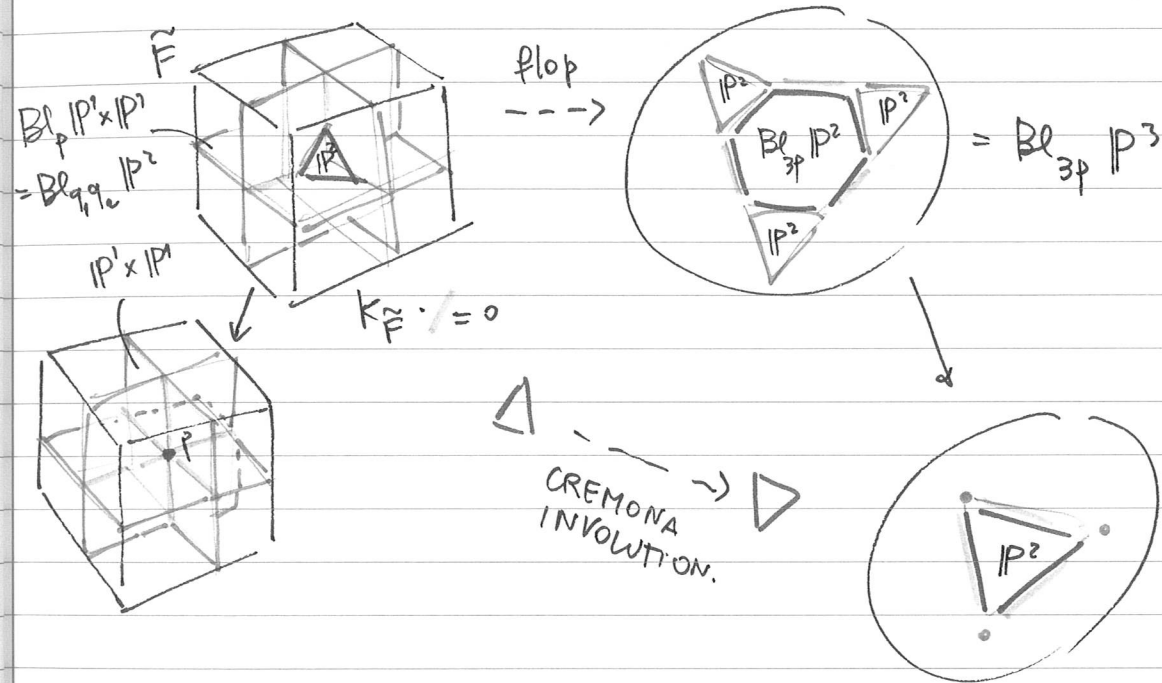 F̃
flop
Bl_p ℙ¹×ℙ¹
= Bl_{q₁q₂} ℙ²
ℙ²
ℙ²
ℙ²
Bl_{3p} ℙ²
ℙ²
= Bl_{3p} ℙ³
ℙ¹×ℙ¹
K_F̃ · / = 0
p
CREMONA
INVOLUTION.
ℙ²